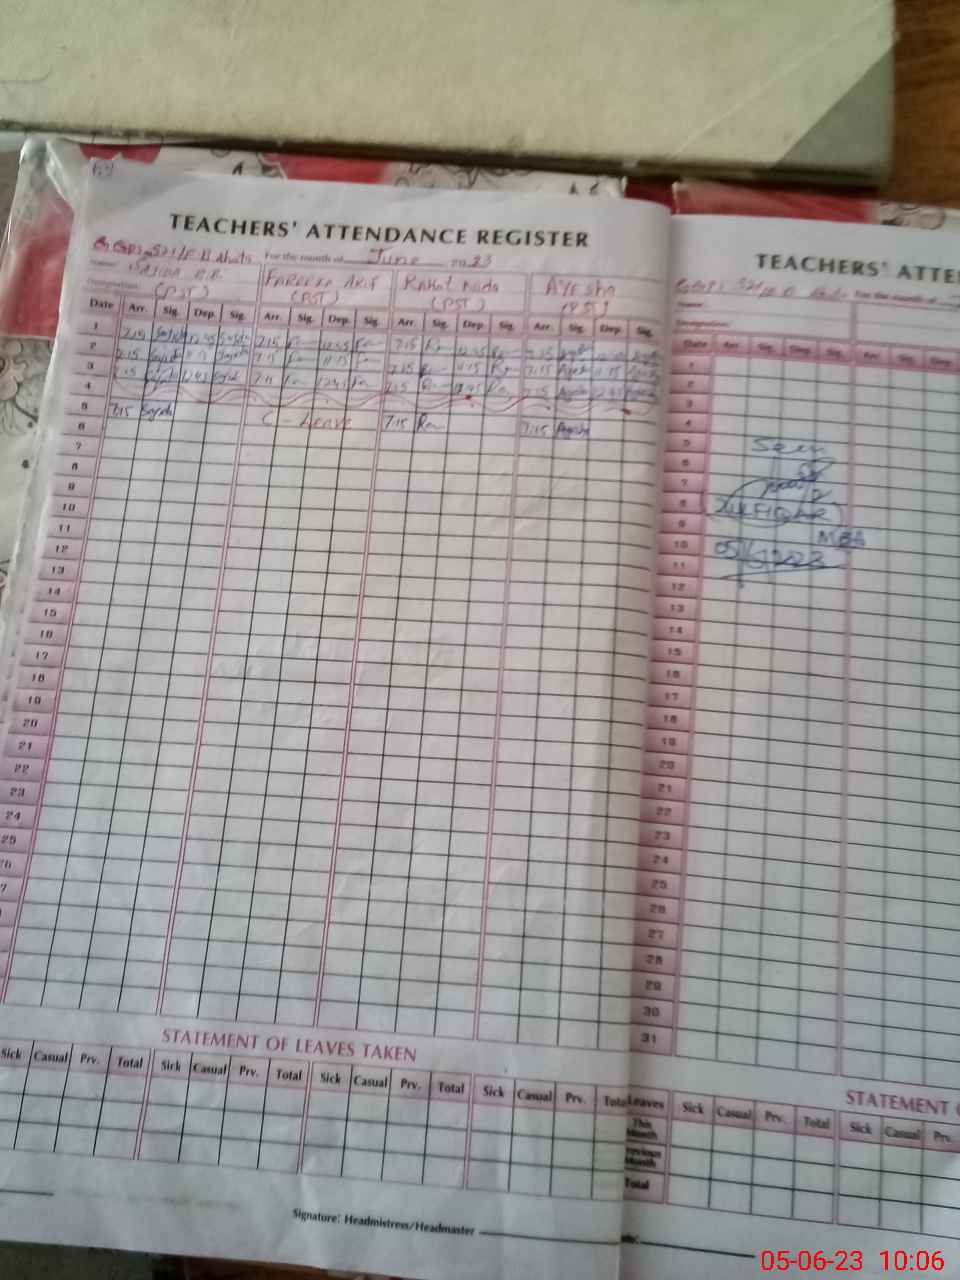 TEACHERS' ATTENDANCE REGISTER
For the month of June 2023
Name: SAJIDA B.B. FAREEZA ARIF RAHAT NADA AYESHA
Designation: (PST) (PST) (PST) (PST)
Date Arr. Sig. Dep. Sig. Arr. Sig. Dep. Sig. Arr. Sig. Dep. Sig. Arr. Sig. Dep. Sig.
1 7.15 Sajida 12.45 Sajida 7.15 12.45 7.15 12.45 7.15 Ayesha
2 7.15 Sajida 11.15 Sajida 7.15 11.15 7.15 11.15 7.15 Ayesha 11.15
3 7.15 Sajida 12.45 Sajida 7.15 12.45 7.15 12.45 7.15 Ayesha 12.45
4
5 7.15 Sajida C - Leave 7.15 7.15 Ayesha
6
7
8
9
10
11
12
13
14
15
16
17
18
19
20
21
22
23
24
25
STATEMENT OF LEAVES TAKEN
Sick Casual Prv. Total Sick Casual Prv. Total Sick Casual Prv. Total Sick Casual Prv. Total
Signature: Headmistress/Headmaster
TEACHERS' ATTE
For the month of
Name:
Designation:
Date Arr. Sig. Dep. Sig. Arr. Sig. Dep.
1
2
3
4
5
Seen
6
7
8
Zulfiqar
9
MEA
10
05/6/2023
11
12
13
14
15
16
17
18
19
20
21
22
23
24
25
26
27
28
29
30
31
STATEMENT
Leaves Sick Casual Prv. Total Sick Casual Prv.
This Month
Previous Month
Total
05-06-23 10:06